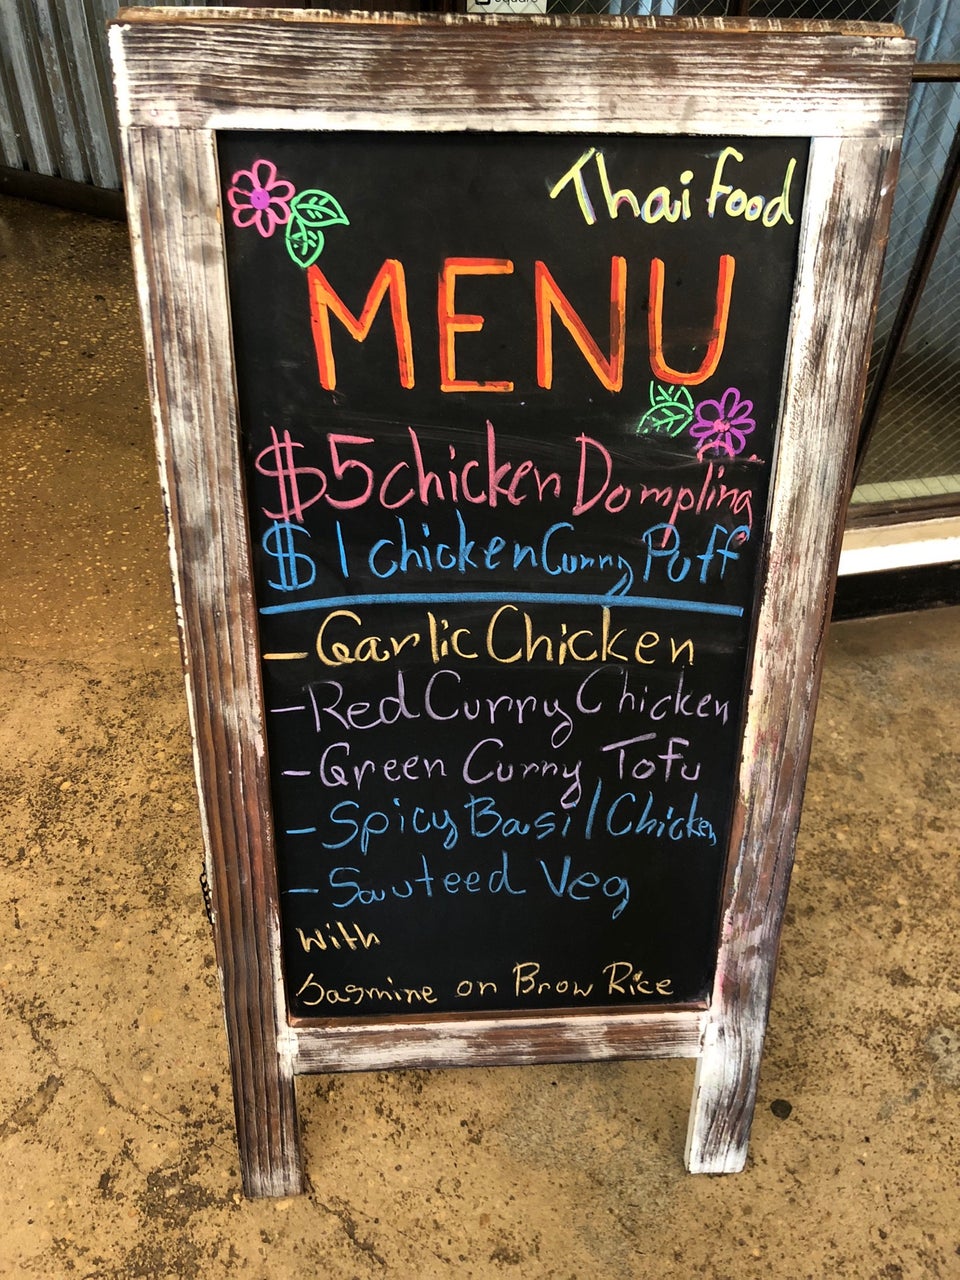 Square
Thai Food
MENU
$5 chicken Dompling
$1 chicken Curry Puff
- Garlic Chicken
- Red Curry Chicken
- Green Curry Tofu
- Spicy Basil Chicken
- Sauteed Veg
With
Jasmine on Brow Rice